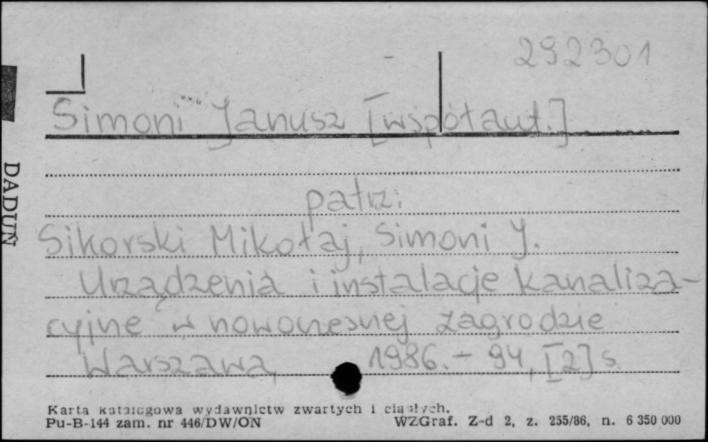 292301
Simoni Janusz [współaut.]
DADUŃ
patrz:
Sikorski Mikołaj, Simoni J.
Urządzenia i instalacje kanaliza-
cyjne w nowoczesnej zagrodzie
Warszawa, 1986. – 94, [2] s.
Karta katalogowa wydawnictw zwartych i ciągłych.
Pu-B-144 zam. nr 446/DW/ON WZGraf. Z-d 2, z. 255/86, n. 6 350 000